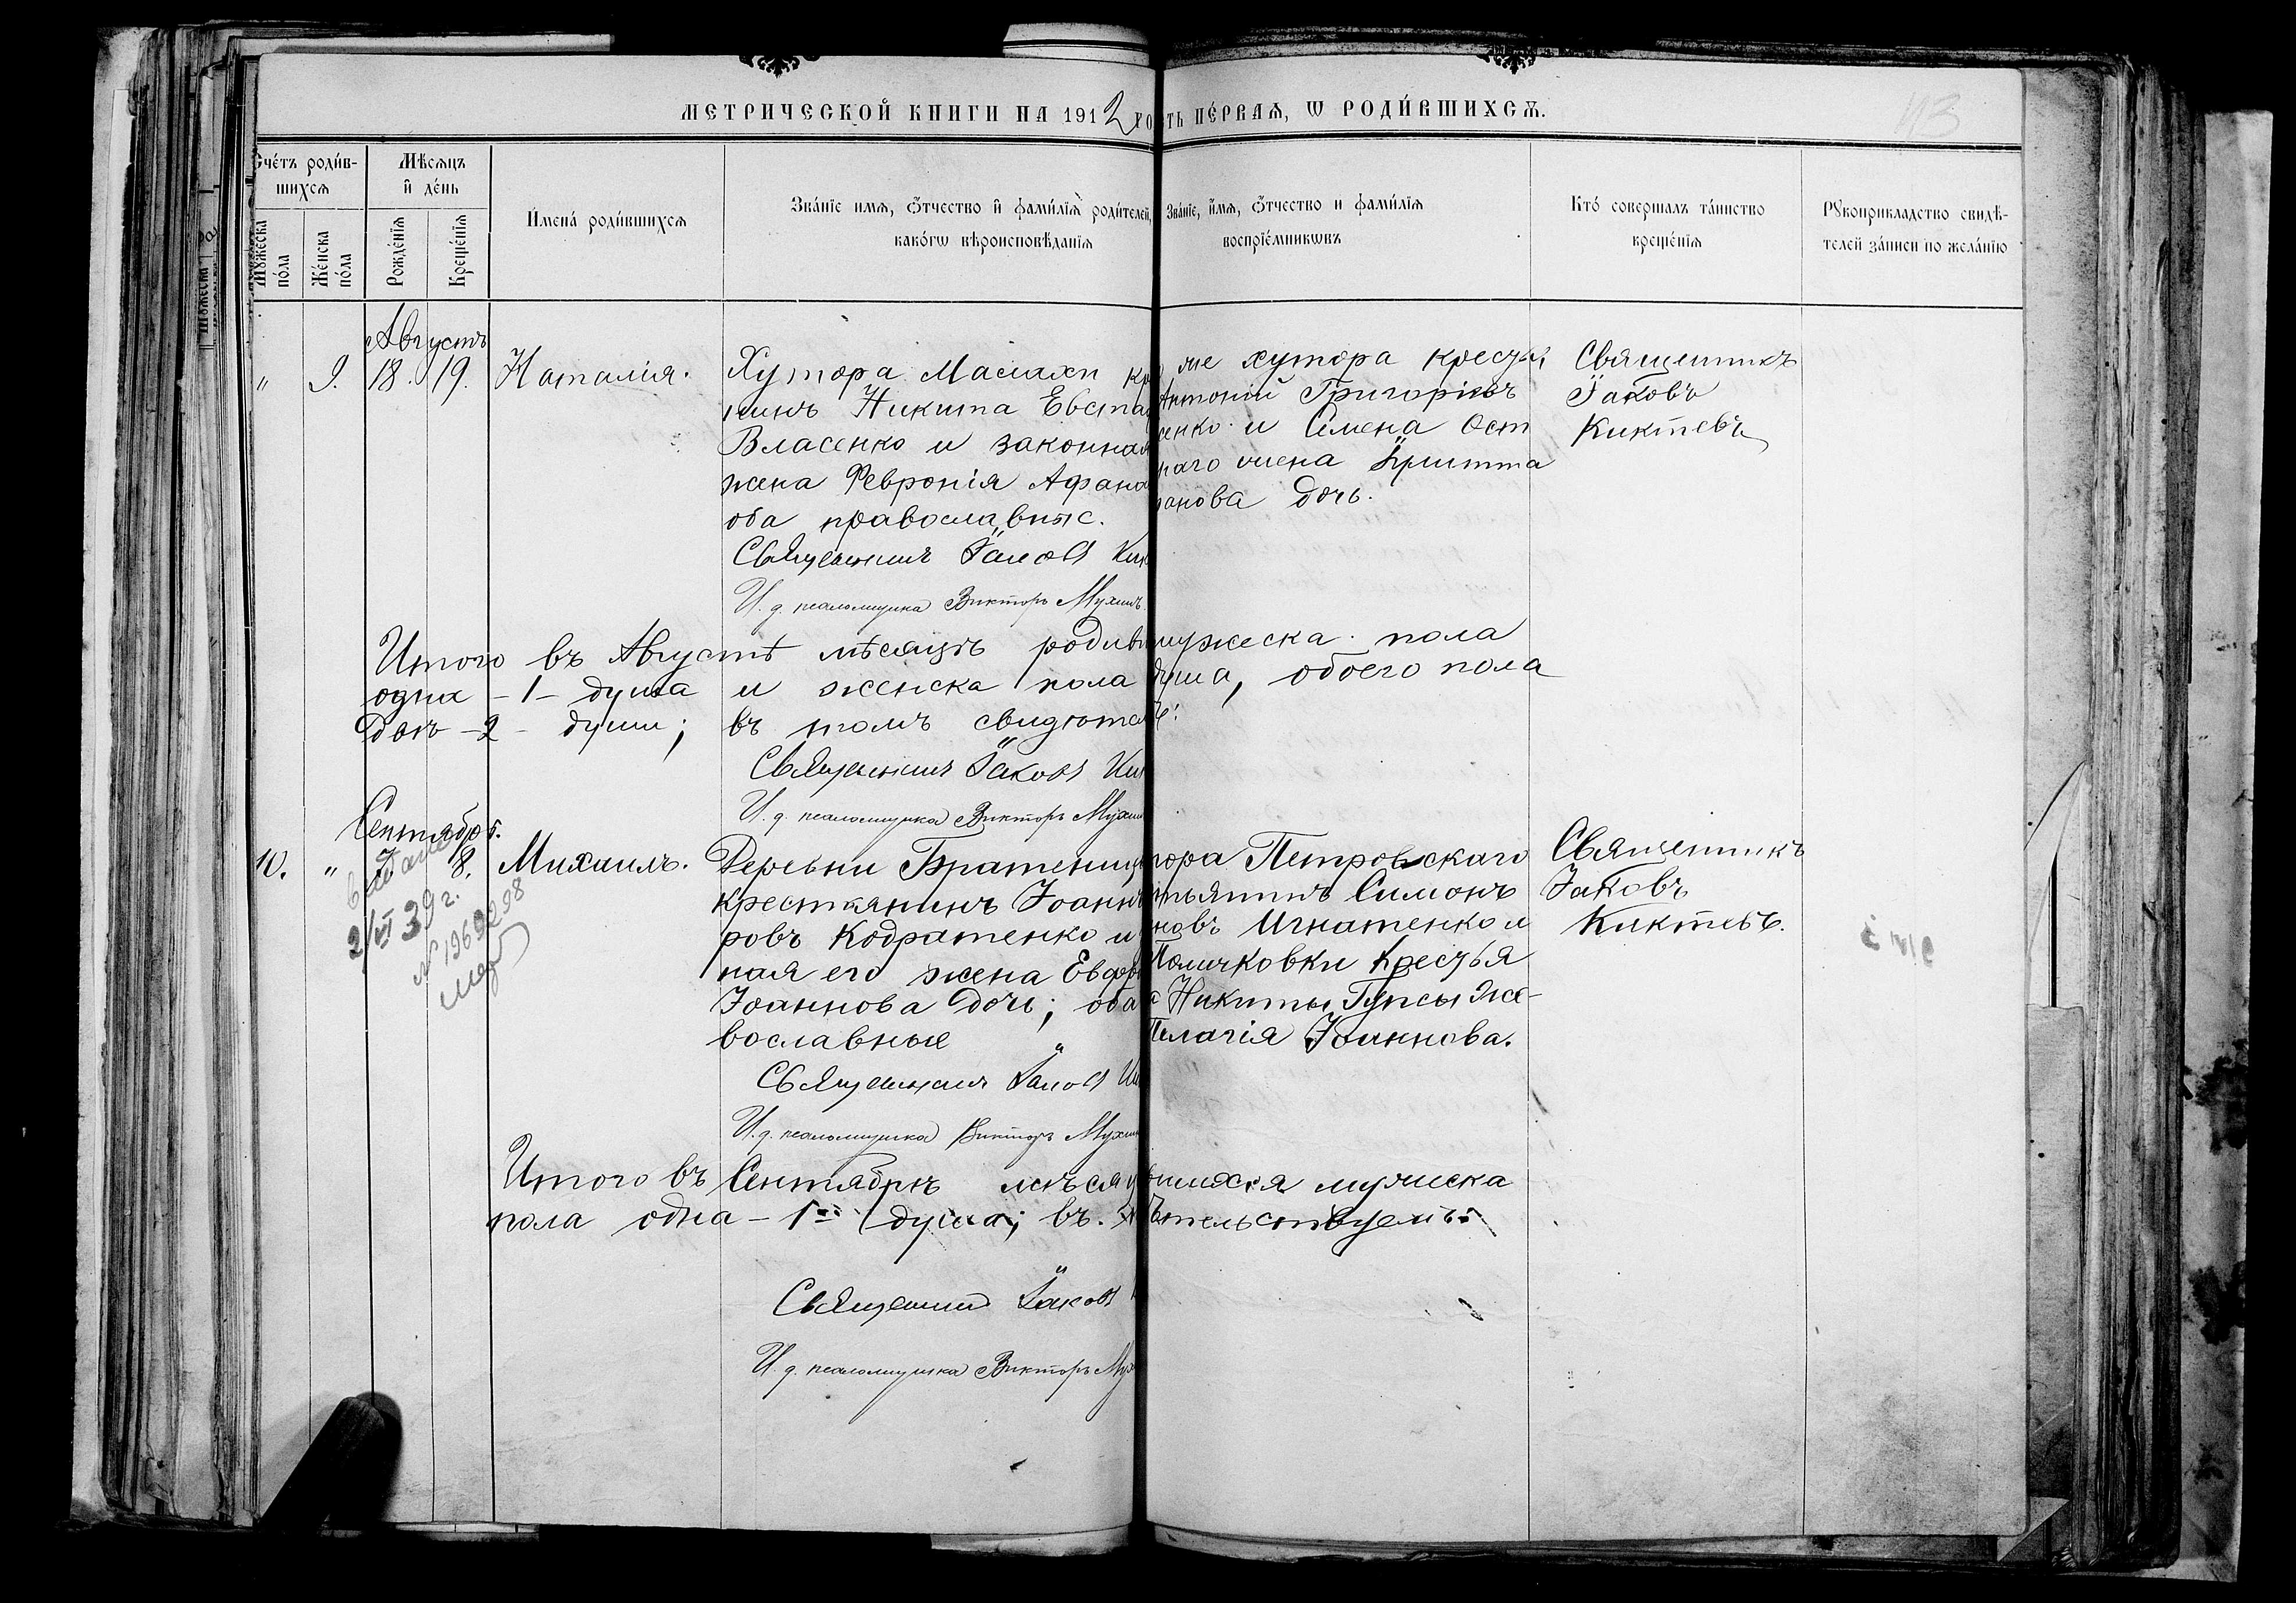 МЕТРИЧЕСКОЙ КНИГИ НА 1912
сть пе́рвая, ѡ роди́вшихсѧ.
43
Счéтъ роди́в-
шихсѧ
Мꙋ́жеска
по́ла
Же́нска
по́ла
Мѣсѧцъ
и҆ де́нь
Рожде́нїѧ
Креще́нїѧ
И҆мена́ роди́вшихсѧ
Зва́нїе имѧ, ѻ҆́тчество и҆ фами́лїѧ роди́телей,
како́гѡ вѣроисповѣ́данїѧ
Зва́нїе, и҆́мѧ, ѻ҆́тчество и фами́лїѧ
воспрїе́мникѡвъ
Кто́ соверша́лъ та́инство
креще́нїѧ
Рꙋкоприкладство свидѣ́-
телей за́писи по жела́нїю
Августъ
" 9. 18. 19. Наталія.
Хутора Маслахи кр
нинъ Никита Евста
Власенко и законная
жена Февронія Афана
оба православные.
Священникъ Іаковъ
И. д. псаломщика Викторъ Мухинъ.
же хутора крестья
Антоній Григоріевъ
сенко и Семена Ост
наго жена
анова дочь.
Священникъ
Іаковъ
Киктевъ
Итого въ Августѣ мѣсяцѣ родив
мужеска пола
одна -1- душа и женска пола
душа, обоего пола
двѣ -2- души; въ томъ свидѣте
Священникъ Іаковъ
И. д. псаломщика Викторъ Мухин
Сентябрь.
10. " 7. 8. Михаилъ.
2/VI 39 г.
Деревни Братениц
крестьянинъ Іоаннъ
ровъ Кодратенко и
ная его жена Евфро
Іоаннова дочь; оба
вославные
Священникъ Іаковъ
И. д. псаломщика Викторъ Мухин
тора Петровскаго
стьянинъ Симонъ
новъ Игнатенко и
крестья
Никиты Гупсы же-
Пелагія Іоаннова.
Священникъ
Іаковъ
Киктевъ.
Итого въ Сентябрѣ мѣсяц
вшихся мужеска
пола одна -1- душа; въ
ѣтельствуемъ:
Священникъ Іаковъ
И. д. псаломщика Викторъ Мух